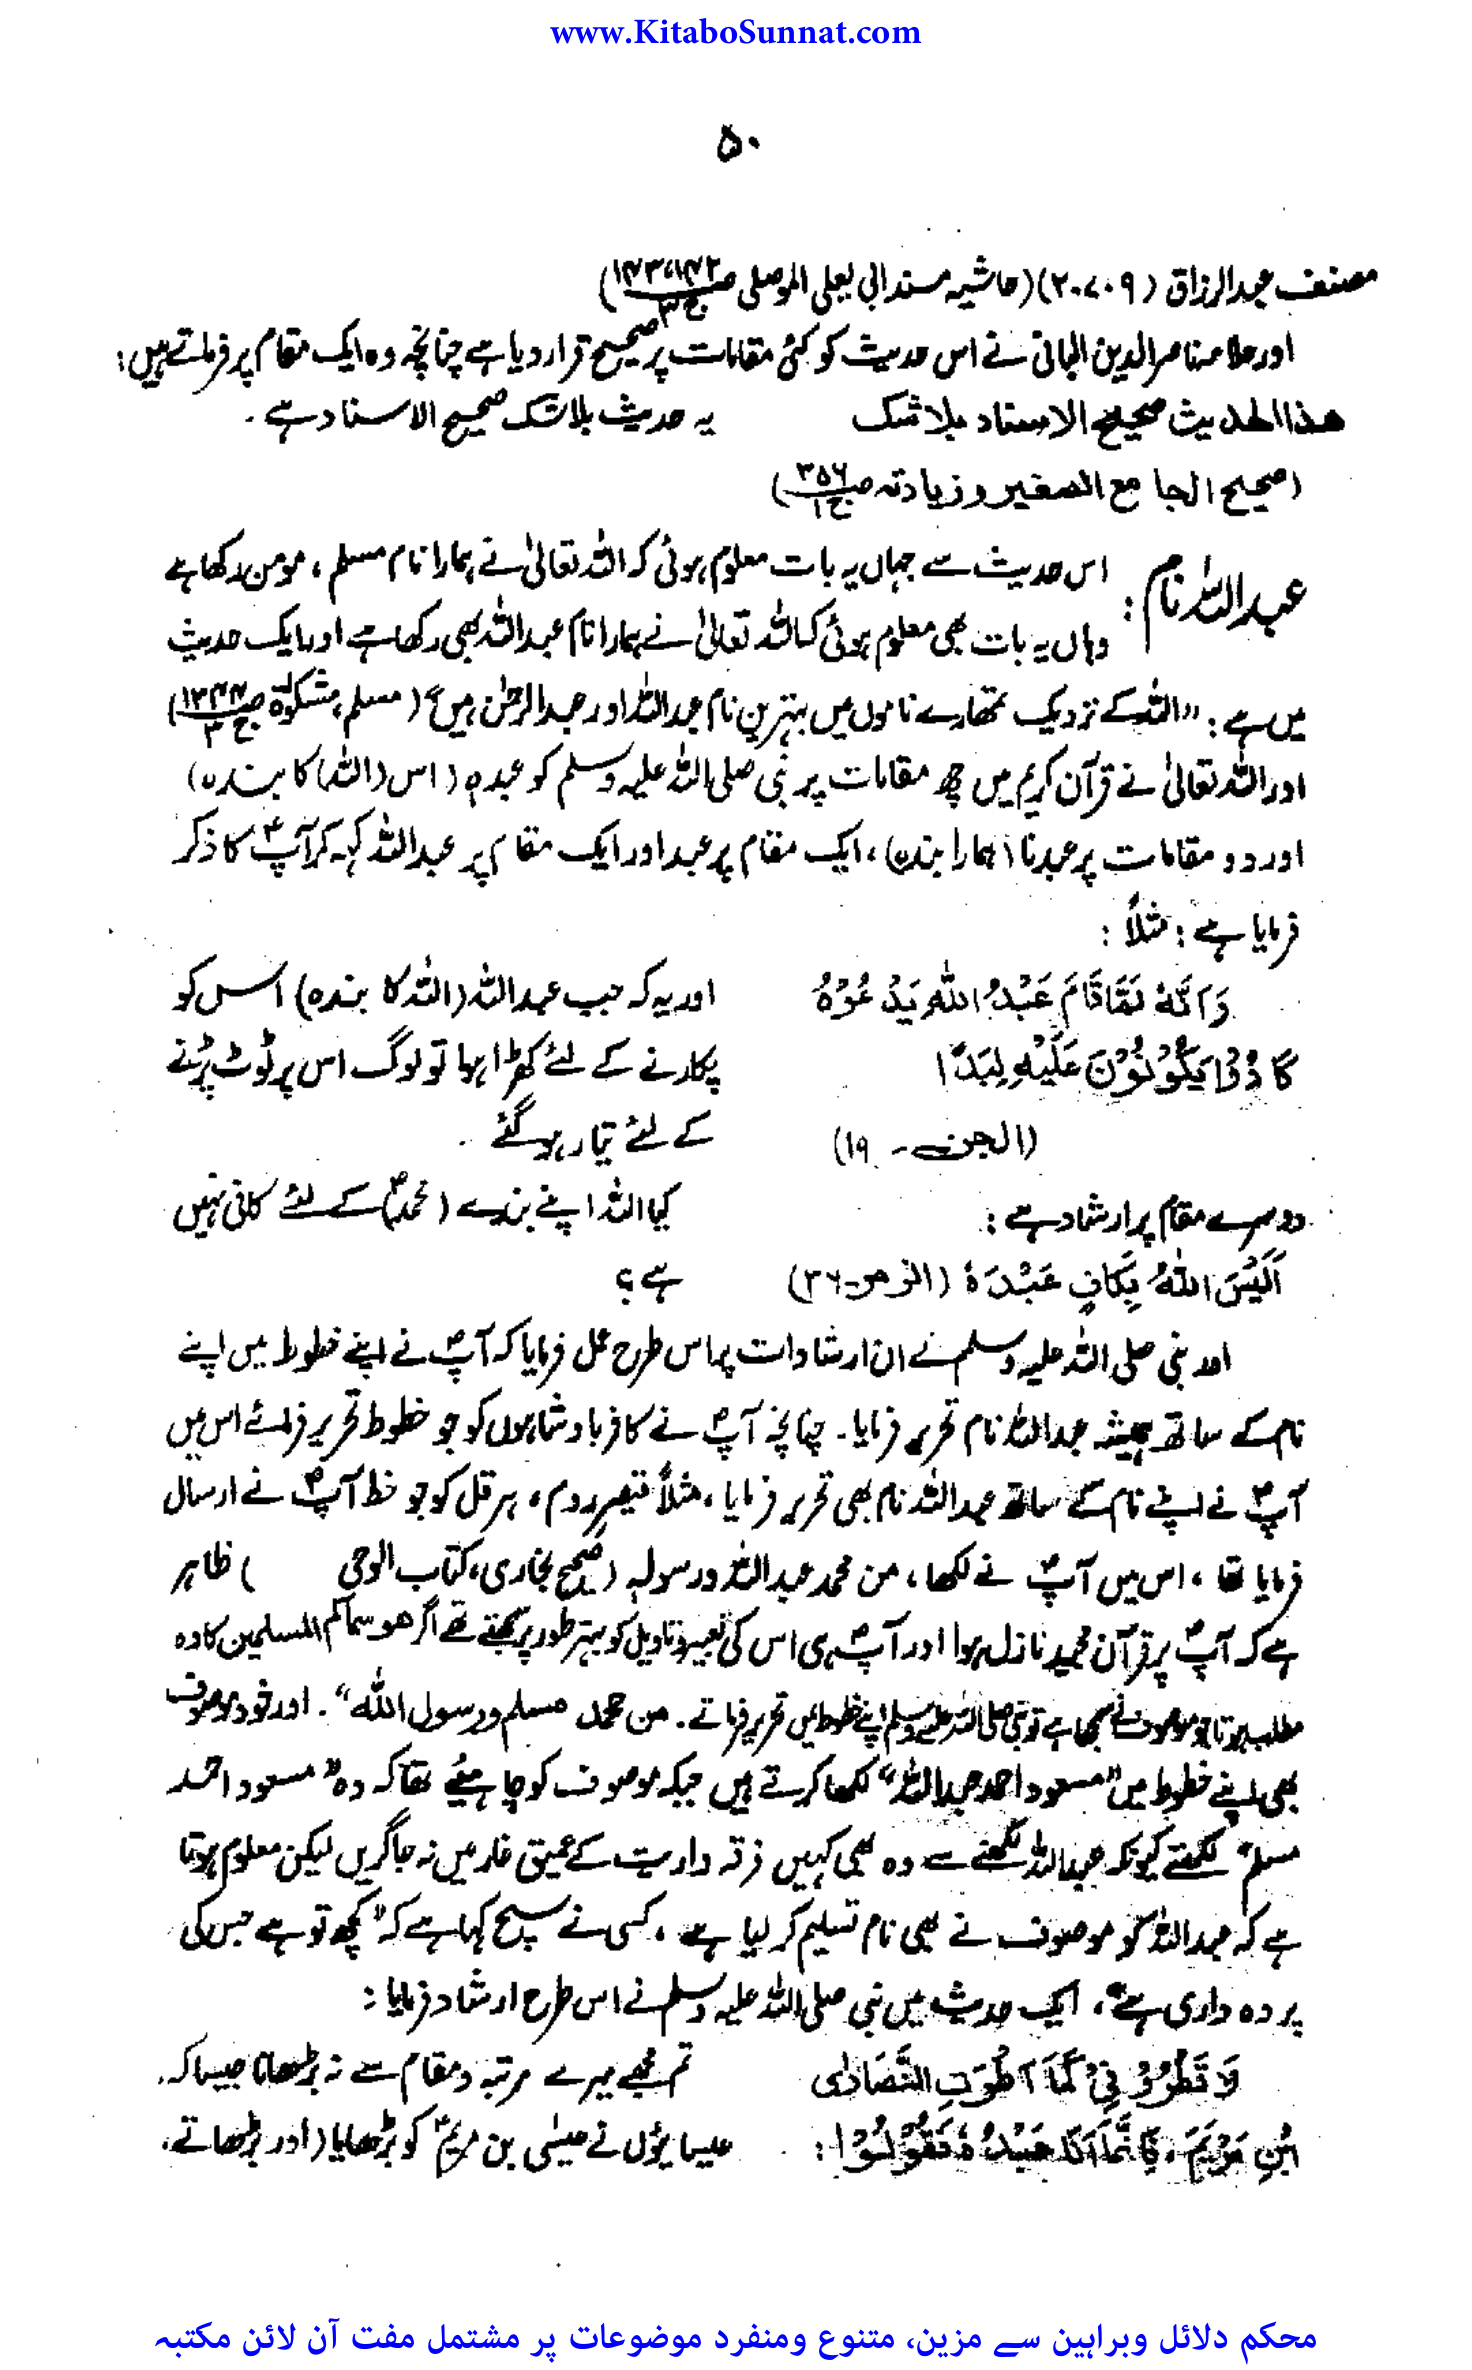 www.KitaboSunnat.com
۵۰
مصنف عبدالرزاق (۲۰۷۰۹)(حاشیہ مسند ابی یعلی الموصلی ص۱۴۲،۱۴۳ ج۳)
اور علامہ ناصر الدین البانی نے اس حدیث کو کئی مقامات پر صحیح قرار دیا ہے چنانچہ وہ ایک مقام پر فرماتے ہیں:
ھذا الحدیث صحیح الاسناد بلاشک یہ حدیث بلاشک صحیح الاسناد ہے۔
(صحیح الجامع الصغیر و زیادتہ ص۳۵۶ ج۱)
عبداللہ نام: اس حدیث سے جہاں یہ بات معلوم ہوئی کہ اللہ تعالیٰ نے ہمارا نام مسلم، مومن رکھا ہے
وہاں یہ بات بھی معلوم ہوئی کہ اللہ تعالیٰ نے ہمارا نام عبداللہ بھی رکھا ہے اور ایک حدیث
میں ہے: "اللہ کے نزدیک تمھارے ناموں میں بہترین نام عبداللہ اور عبدالرحمٰن ہیں" (مسلم، مشکوٰۃ ص۱۳۴۴ ج۳)
اور اللہ تعالیٰ نے قرآن کریم میں چھ مقامات پر نبی صلی اللہ علیہ وسلم کو عبدہٖ (اس (اللہ) کا بندہ)
اور دو مقامات پر عبدنا (ہمارا بندہ)، ایک مقام پر عبد اور ایک مقام پر عبداللہ کہہ کر آپؐ کا ذکر
فرمایا ہے: مثلاً:
وَاَنَّہٗ لَمَّا قَامَ عَبْدُ اللّٰہِ یَدْعُوْہُ اور یہ کہ جب عبداللہ (اللہ کا بندہ) اس کو
کَادُوْا یَکُوْنُوْنَ عَلَیْہِ لِبَدًا پکارنے کے لئے کھڑا ہوا تو لوگ اس پر ٹوٹ پڑنے
(الجن۔ ۱۹) کے لئے تیار ہو گئے۔
دوسرے مقام پر ارشاد ہے: کیا اللہ اپنے بندے (محمدؐ) کے لئے کافی نہیں
اَلَیْسَ اللّٰہُ بِکَافٍ عَبْدَہٗ (الزمر۔۳۶) ہے؟
اور نبی صلی اللہ علیہ وسلم نے ان ارشادات پر اس طرح عمل فرمایا کہ آپؐ نے اپنے خطوط میں اپنے
نام کے ساتھ ہمیشہ عبداللہ نام تحریر فرمایا۔ چنانچہ آپؐ نے کافر بادشاہوں کو جو خطوط تحریر فرمائے اس میں
آپؐ نے اپنے نام کے ساتھ عبداللہ نام بھی تحریر فرمایا، مثلاً قیصر روم، ہرقل کو جو خط آپؐ نے ارسال
فرمایا تھا، اس میں آپؐ نے لکھا، من محمد عبداللہ ورسولہ (صحیح بخاری، کتاب الوحی ) ظاہر
ہے کہ آپؐ پر قرآن مجید نازل ہوا اور آپؐ ہی اس کی تعبیر و تاویل کو بہتر طور پر سمجھتے تھے اگر ھو سماکم المسلمین کا وہ
مطلب ہوتا جو موصوف نے سمجھا ہے تو نبی صلی اللہ علیہ وسلم اپنے خطوط میں تحریر فرماتے۔ من محمد مسلم ورسول اللہ"۔ اور خود موصوف
بھی اپنے خطوط میں "مسعود احمد عبداللہ" لکھا کرتے ہیں جبکہ موصوف کو چاہیئے تھا کہ وہ "مسعود احمد
مسلم" لکھتے کیونکہ عبداللہ لکھنے سے وہ بھی کہیں فرقہ واریت کے عمیق غار میں نہ جا گریں لیکن معلوم ہوتا
ہے کہ عبداللہ کو موصوف نے بھی نام تسلیم کر لیا ہے، کسی نے سچ کہا ہے کہ "کچھ تو ہے جس کی
پردہ داری ہے"، ایک حدیث میں نبی صلی اللہ علیہ وسلم نے اس طرح ارشاد فرمایا:
لَا تَطْرُوْنِیْ کَمَا اَطْرَتِ النَّصَارٰی تم مجھے میرے مرتبہ و مقام سے نہ بڑھانا جیسا کہ
ابْنِ مَرْیَمَ، فَاِنَّمَا اَنَا عَبْدُہٗ فَقُوْلُوْا: عیسائیوں نے عیسٰی بن مریمؑ کو بڑھایا (اور بڑھاتے
محکم دلائل وبراہین سے مزین، متنوع ومنفرد موضوعات پر مشتمل مفت آن لائن مکتبہ